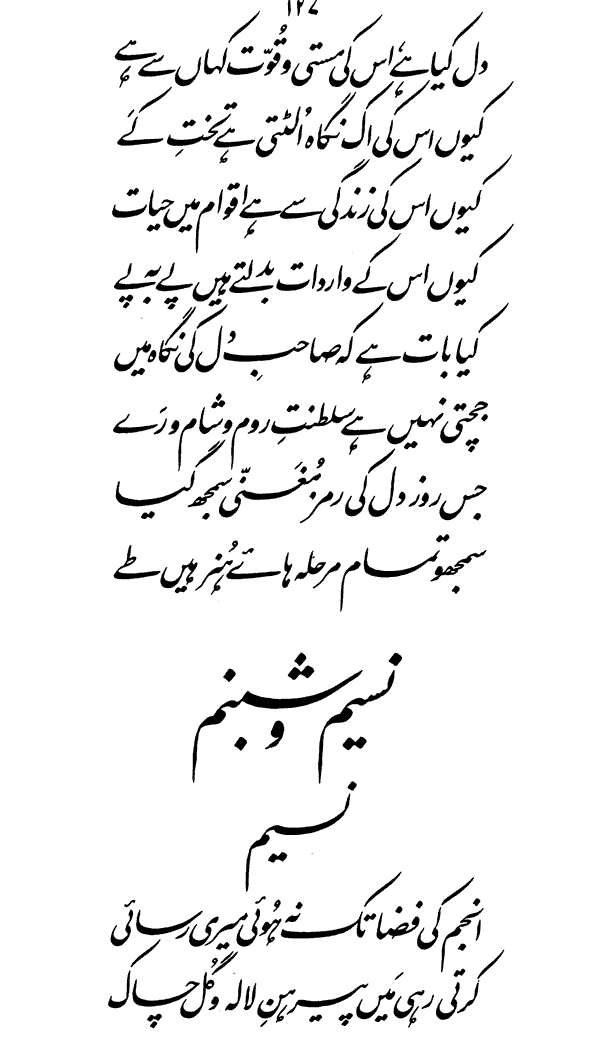 ۱۲۷
دل کیا ہے، اس کی مستی و قُوّت کہاں سے ہے
کیوں اس کی اک نگاہ اُلٹتی ہے تختِ کَے
کیوں اس کی زندگی سے ہے اقوام میں حیات
کیوں اس کے واردات بدلتے ہیں پے بہ پے
کیا بات ہے کہ صاحبِ دل کی نگاہ میں
جچتی نہیں ہے سلطنتِ روم و شام و رَے
جس روز دل کی رمز مُغَنّی سمجھ گیا
سمجھو تمام مرحلہ ہائے ہُنر ہیں طے
نسیم و شبنم
نسیم
انجم کی فضا تک نہ ہُوئی میری رسائی
کرتی رہی مَیں پیرہنِ لالہ و گُل چاک